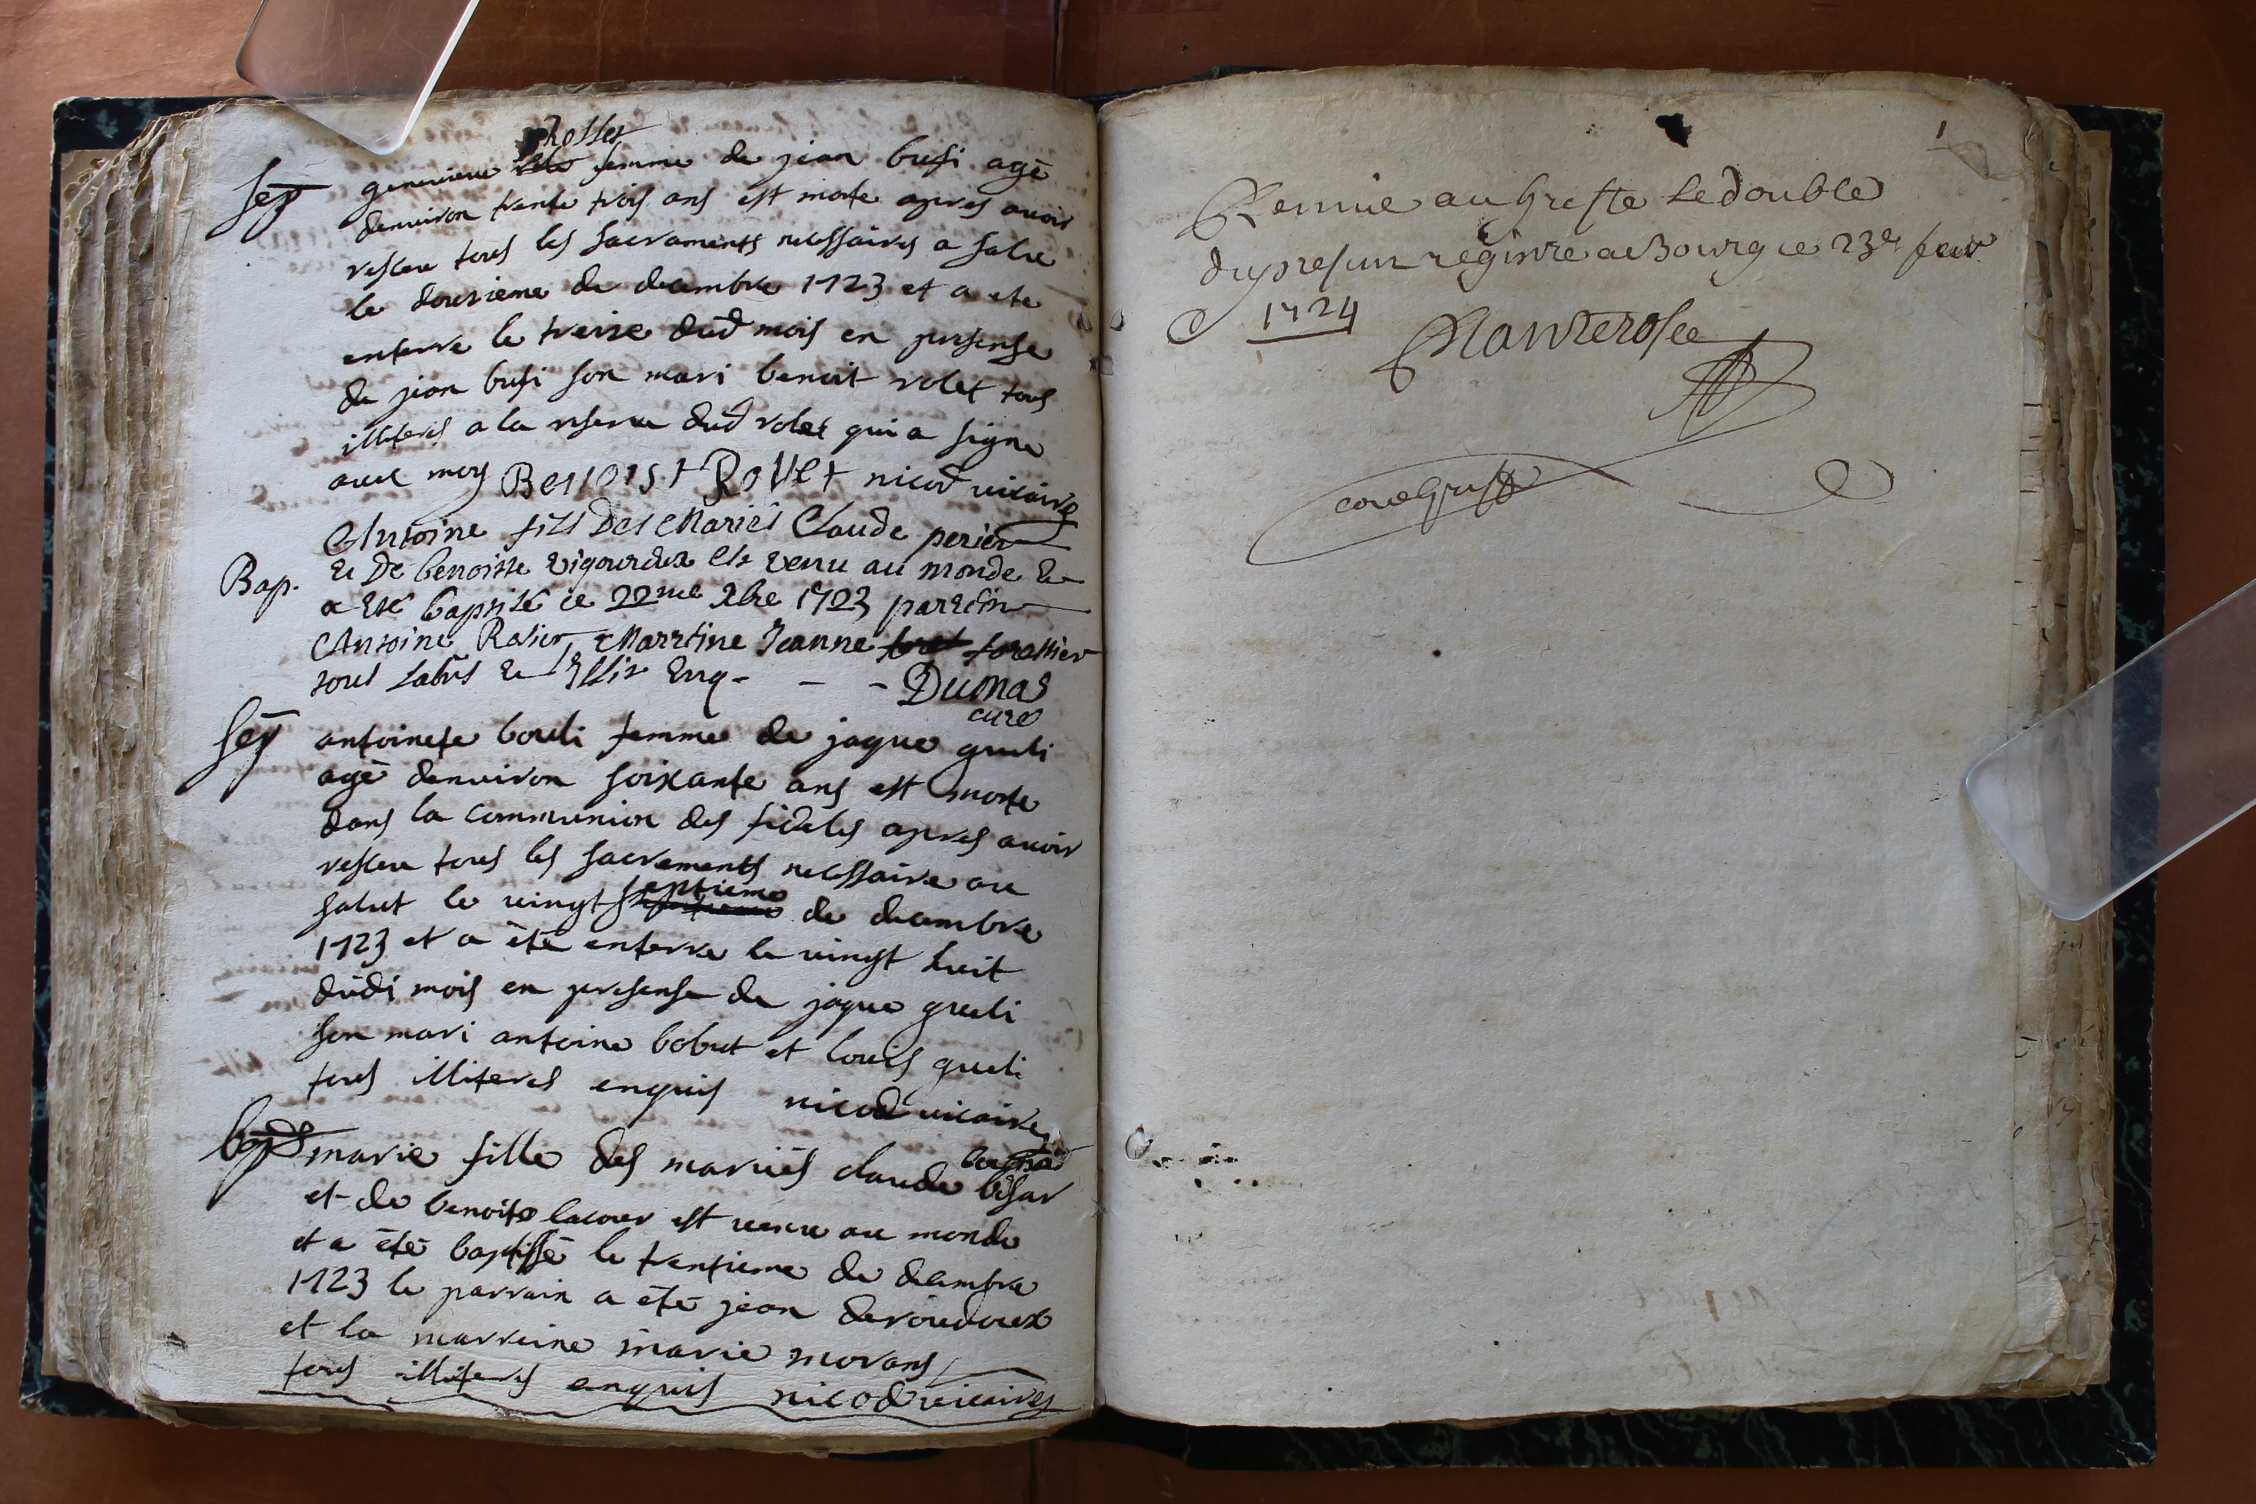 rollet
sep genevieve femme de jean busi agé
denviron trante trois ans est morte apres avoir
resceu tous les sacraments necessaires a salu
le dousieme de decembre 1723 et a ete
enterre le treise dud mois en presense
de jean busi son mari benoit rolet tous
illiteres a la reserve dud rolet qui a signe
avec moy Benoist Rollet nicod vicaire
Antoine fils Des Mariés Claude perier
Bap. & De benoitte vigourdux est venu au monde &
a Eté baptisé ce 22me Xbre 1723 parrain
Antoine Ratier Marrine Jeanne forettier
tous Labrs & Illit Enq - - - Dumas
curé
sep antoinete bouli femme de jaque gueli
agé denviron soixante ans est morte
dans la communion des fideles apres avoir
resceu tous les sacrements necessaire au
salut le vingt septieme de decembre
1723 et a été enterre le vingt huit
dudi mois en presense de jaque gueli
son mari antoine bobut et louis gueli
tous illiteres enquis nicod vicaire
bap marie fille des mariés claude besar
et de benoite lacour est venu au monde
et a été baptissé le trentieme de decembre
1723 le parrain a eté jean deroudoux
et la marreine marie morans
tous illiteres enquis nicod vicaires
1
Remie au Greffe Le double
du presun registre a Bourg ce 23e feuv
1724
Chanterosee
con greff